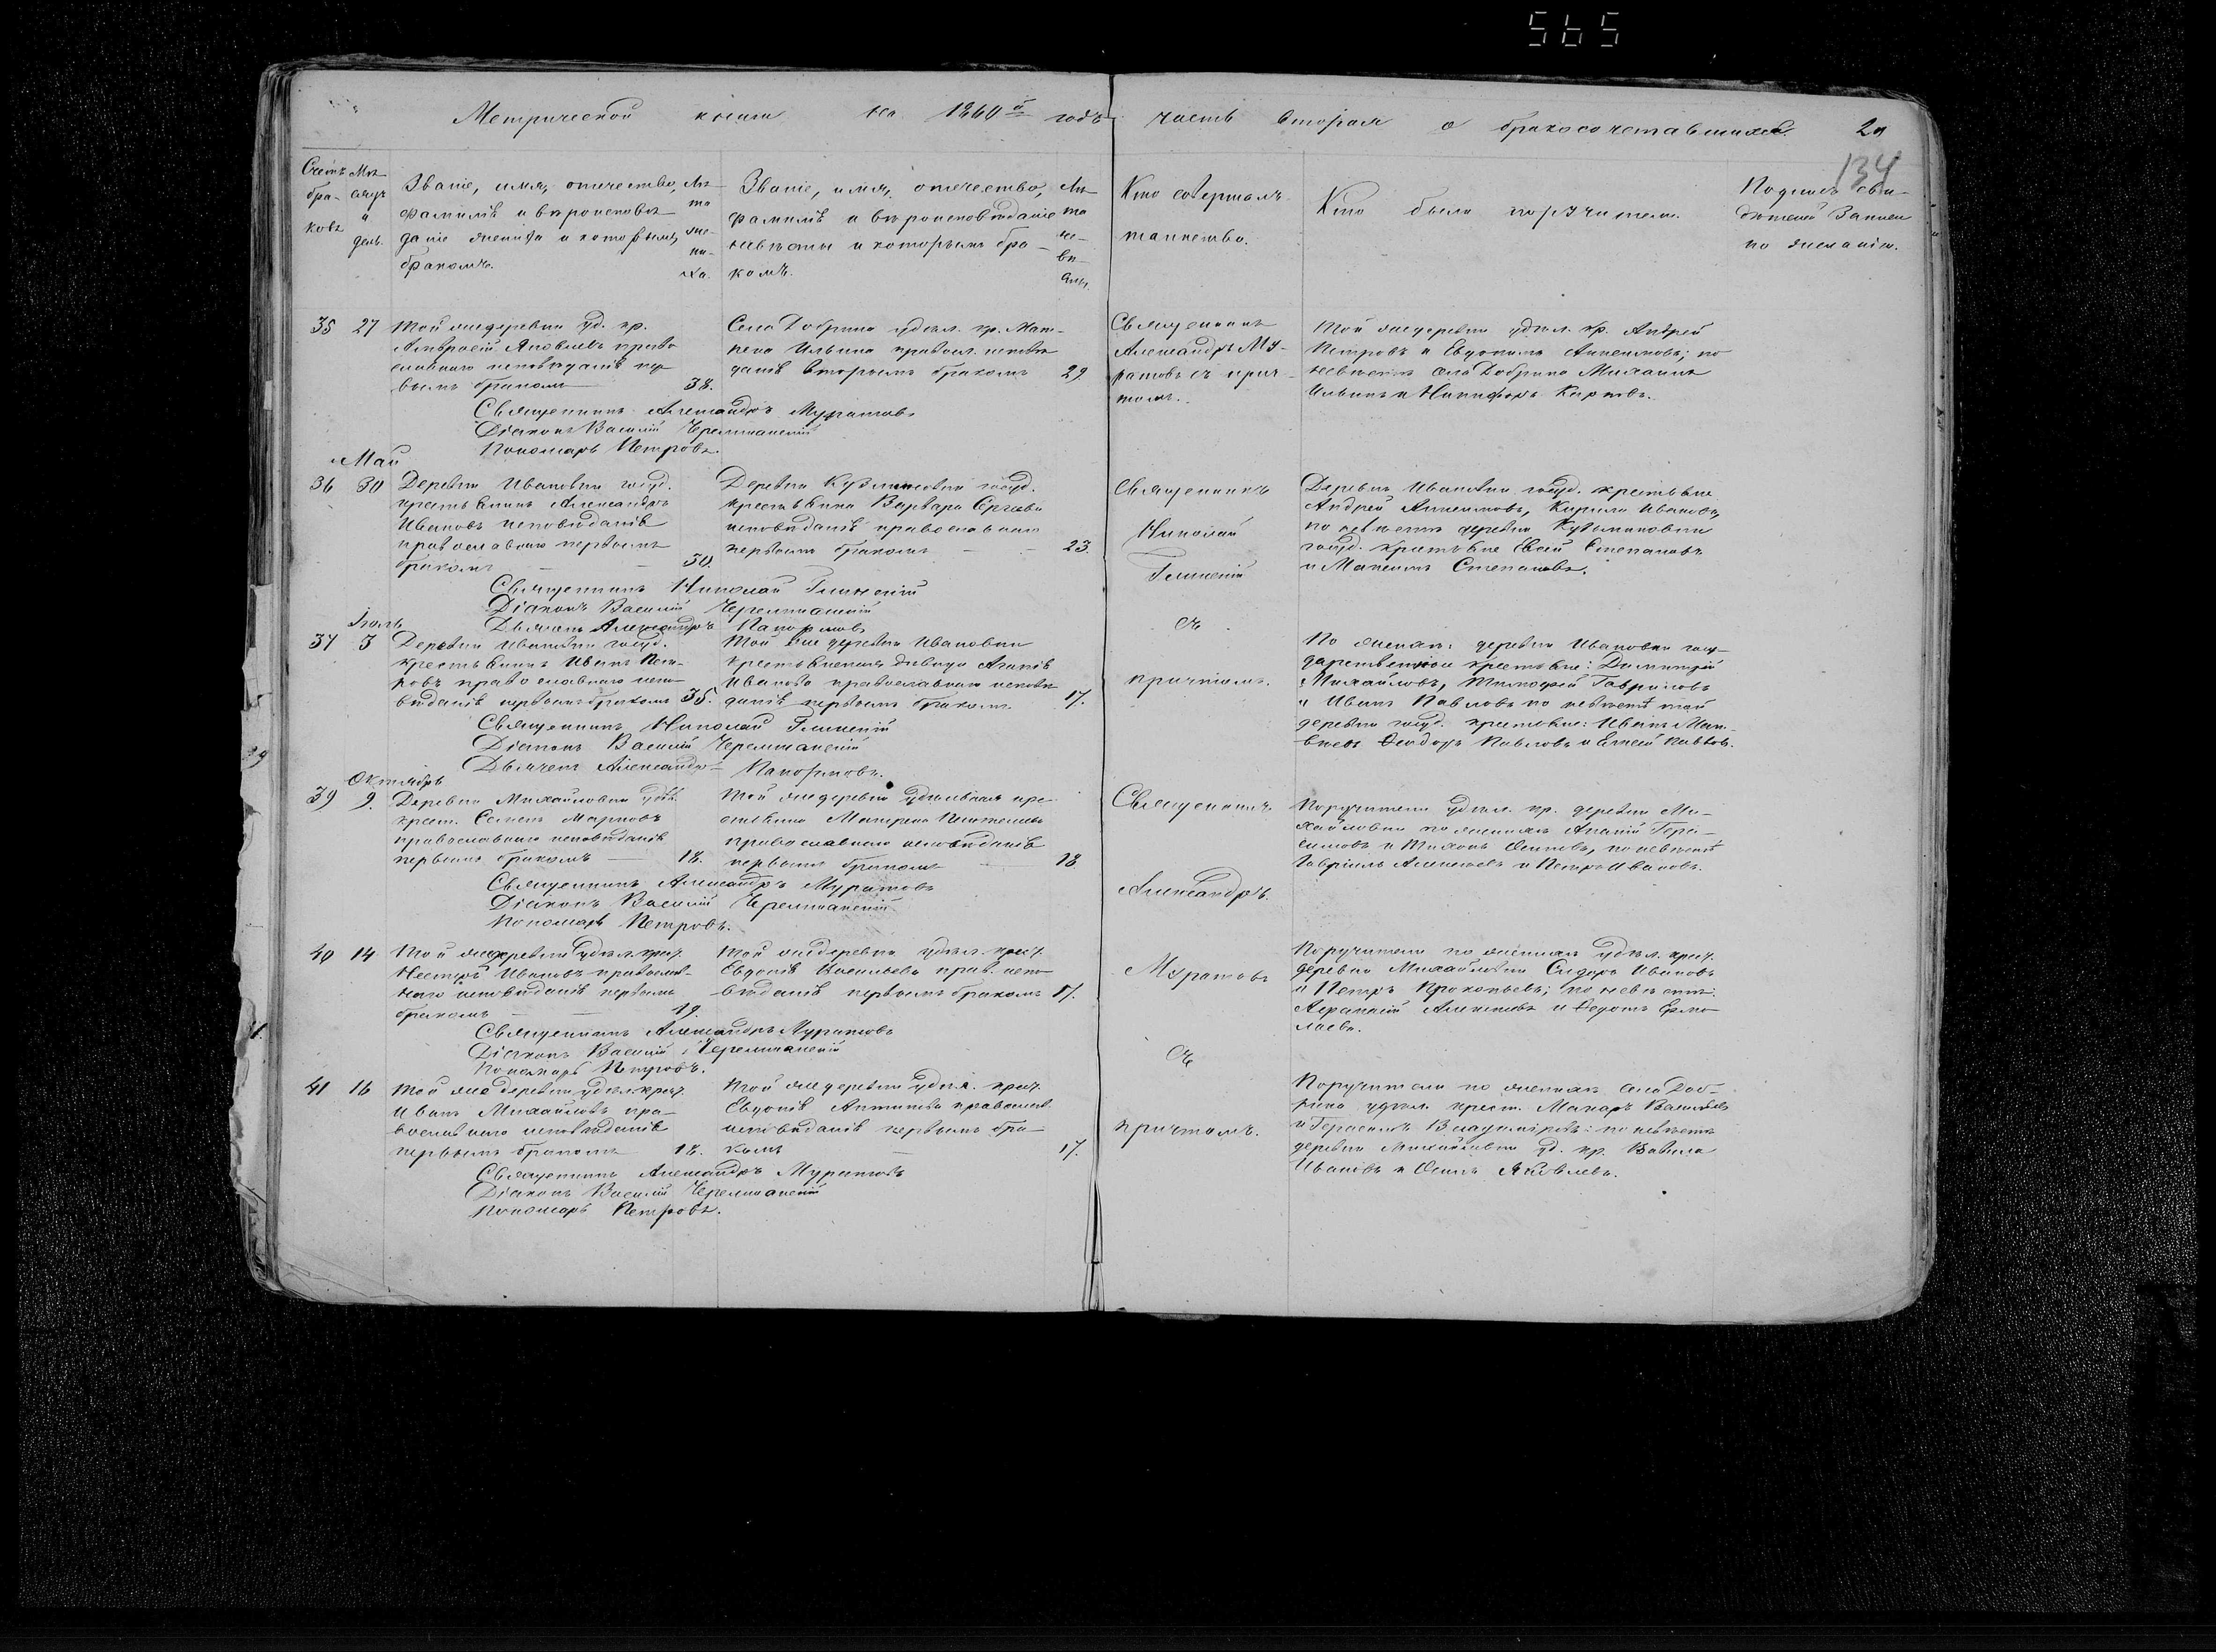 565
Метрической книги на 1860й годъ часть вторая о бракосочетавшихся. 20
134
Счетъ бра-ковъ
Мѣ-сяцъ и день.
Званіе, имя, отчество,
фамилія и вѣроисповѣ-
даніе жениха и которымъ
бракомъ.
Лѣ-та же-ни-ха.
Званіе, имя, отчество,
фамилія и вѣроисповѣданіе
невѣсты и которымъ бра-
комъ.
Лѣ-та не-вѣ-сты.
Кто совершалъ
таинство.
Кто были поручители.
Подпись сви-
дѣтелей записи
по желанію.
35 27 Той же деревни уд. кр.
Амвросій Яковлевъ право
славнаго исповѣданія пер
вымъ бракомъ 38.
Села Добрина удѣл. кр. Мат-
рена Ильина правосл. исповѣ
данія вторымъ бракомъ 29.
Священникъ
Александръ Му-
ратовъ съ прич-
томъ.
Той же деревни удѣл. кр. Андрей
Петровъ и Евдокимъ Анисимовъ; по
невѣстѣ села Добрина Михаилъ
Ильинъ и Никифоръ Карповъ.
Священникъ Александръ Муратовъ
Діаконъ Василій Черемшанскій
Пономарь Петровъ.
Май
36 30 Деревни Ивановки госуд.
крестьянинъ Александръ
Ивановъ исповѣданія
православнаго первымъ
бракомъ 30.
Деревни Кузминовки госуд.
крестьянка Варвара Сергѣева
исповѣданія православнаго
первымъ бракомъ 23.
Священникъ
Николай
Глинскій
съ
причтомъ.
Деревни Ивановки госуд. крестьяне
Андрей Анисимовъ, Кирила Ивановъ,
по невѣстѣ деревни Кузьминовки
госуд. крестьяне Степановъ
и Максимъ Степановъ.
Священникъ Николай Глинскій
Діаконъ Василій Черемшанскій
Дьячекъ Александръ
Іюль
37 3 Деревни Ивановки госуд.
крестьянинъ Иванъ Пет-
ровъ православнаго испо-
вѣданія первымъ бракомъ 35.
Той же деревни Ивановки
крестьянская дѣвица Агапія
Иванова православнаго исповѣ
данія первымъ бракомъ 17.
По жениху: деревни Ивановки госу-
дарственные крестьяне: Димитрій
Михайловъ, Тимофей Гавриловъ
и Иванъ Павловъ по невѣстѣ той
деревни госуд. крестьяне: Иванъ Мат-
вѣевъ Ѳеодоръ Павловъ и Елисей Павлов.
Священникъ Николай Глинскій
Діаконъ Василій Черемшанскій
Дьячекъ Александръ
Октябрь
39 9. Деревни Михайловки удѣл.
крест. Семенъ Марковъ
православнаго исповѣданія
первымъ бракомъ 18.
Той же деревни удѣльная кре
стьянка Матрена
православнаго исповѣданія
первымъ бракомъ 18
Священникъ
Александръ
Муратовъ
съ
причтомъ.
Поручители удѣл. кр. деревни Ми-
хайловки по жениху Ананій Гера-
симовъ и Тихонъ Осиповъ, по невѣстѣ
Гавріилъ Алексѣевъ и Петръ Ивановъ.
Священникъ Александръ Муратовъ
Діаконъ Василій Черемшанскій
Пономарь Петровъ.
40 14 Той же деревни удѣл. крест.
Несторъ Ивановъ православ-
наго исповѣданія первымъ
бракомъ 19.
Той же деревни удѣл. крест.
Евдокія Васильева прав. испо-
вѣданія первымъ бракомъ 17.
Поручители по жениху удѣл. крест.
деревни Михайловки Сидоръ Ивановъ
и Петръ Прокопьевъ; по невѣстѣ:
Афанасій Алексѣевъ и Федотъ Ермо
лаевъ.
Священникъ Александръ Муратовъ
Діаконъ Василій Черемшанскій
Пономарь Петровъ.
41 16 Той же деревни удѣл. крест.
Иванъ Михайловъ пра-
вославнаго исповѣданія
первымъ бракомъ 18.
Той же деревни удѣл. крест.
Евдокія Антипова православ.
исповѣданія первымъ бра-
комъ 17.
Поручители по жениху села Доб-
рина удѣл. крест. Макаръ Васильевъ
и Герасимъ Владиміровъ: по невѣстѣ
деревни Михайловки уд. кр. Вавила
Ивановъ и Осипъ Яковлевъ.
Священникъ Александръ Муратовъ
Діаконъ Василій Черемшанскій
Пономарь Петровъ.